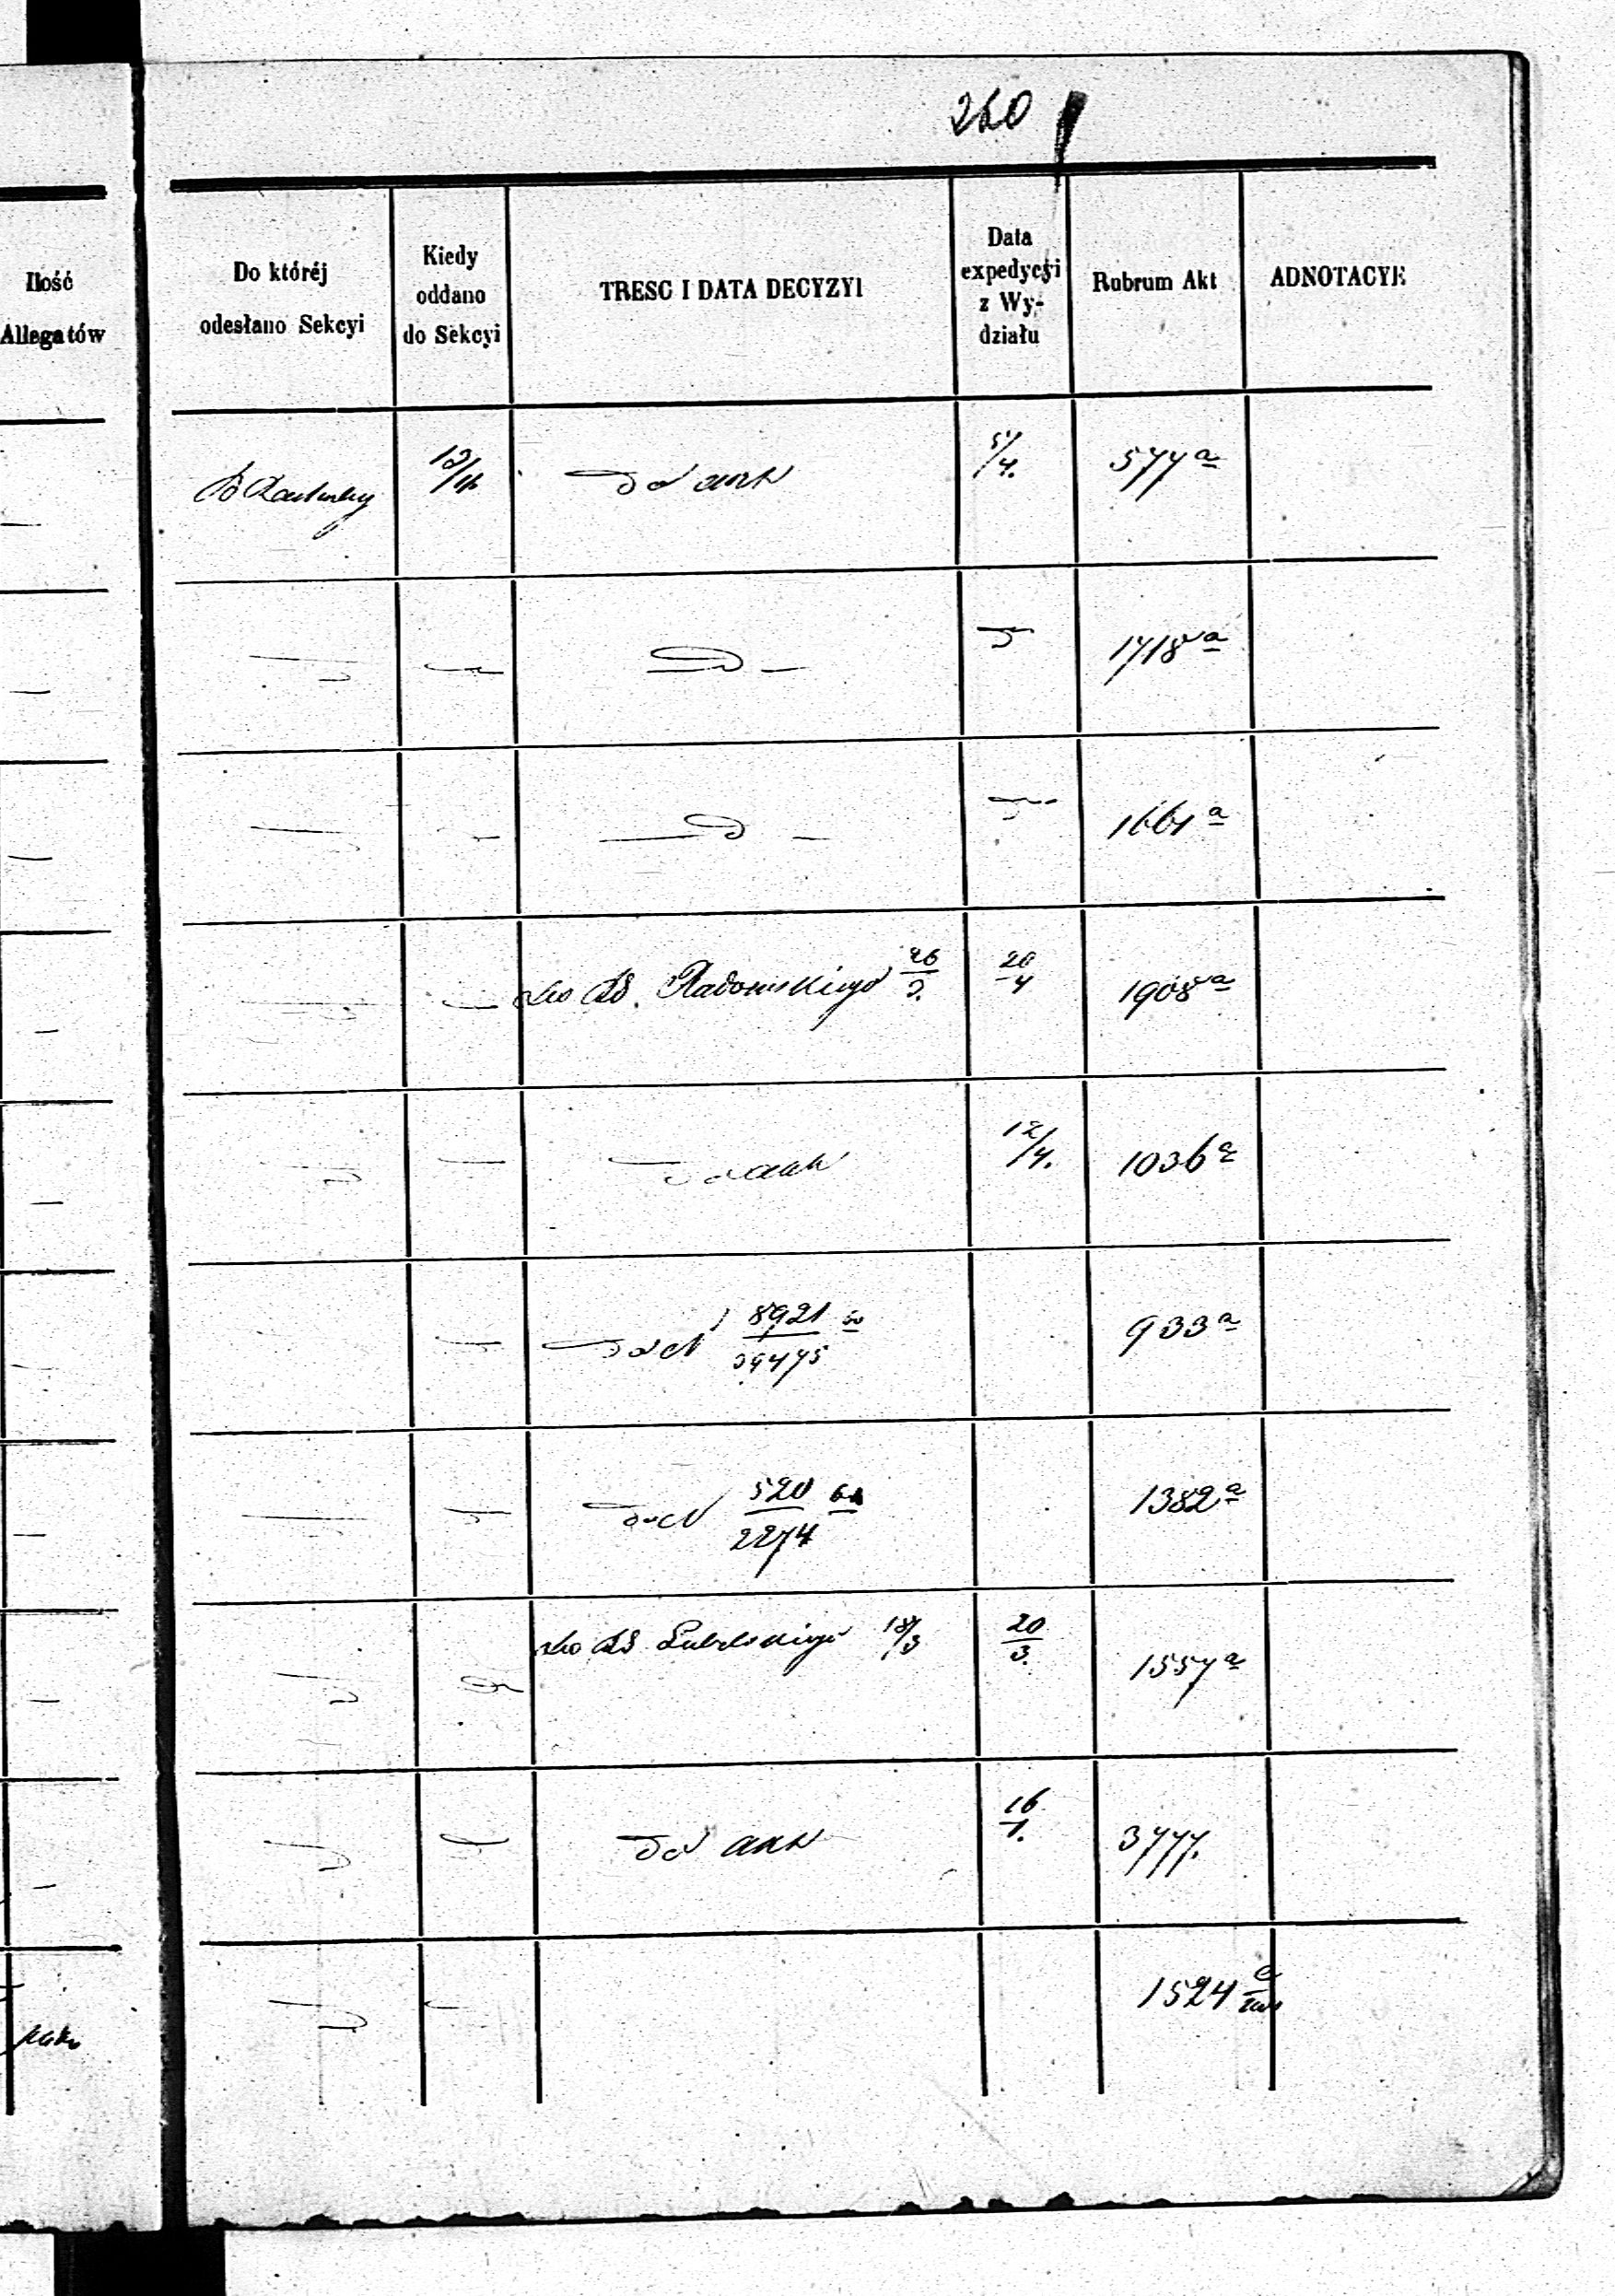 260
Ilość
Allegatów
Do któréj
odesłano Sekcyi
Kiedy
oddano
do Sekcyi
TRESC I DATA DECYZYI
Data
expedycyi
z Wy-
działu
Rubrum Akt
ADNOTACYE
12/4 do akt 5/4. 577 a
1718 a
1661 a
do Rd. Radomskiego 26/3. 20/4 1908 a
do akt 12/4. 1036 a
do N 8921/39475 933 a
do N 520/2274 1382 a
do Rd Lubelskiego 18/3 20/3. 1557 a
do akt 16/1. 3777.
1524 a